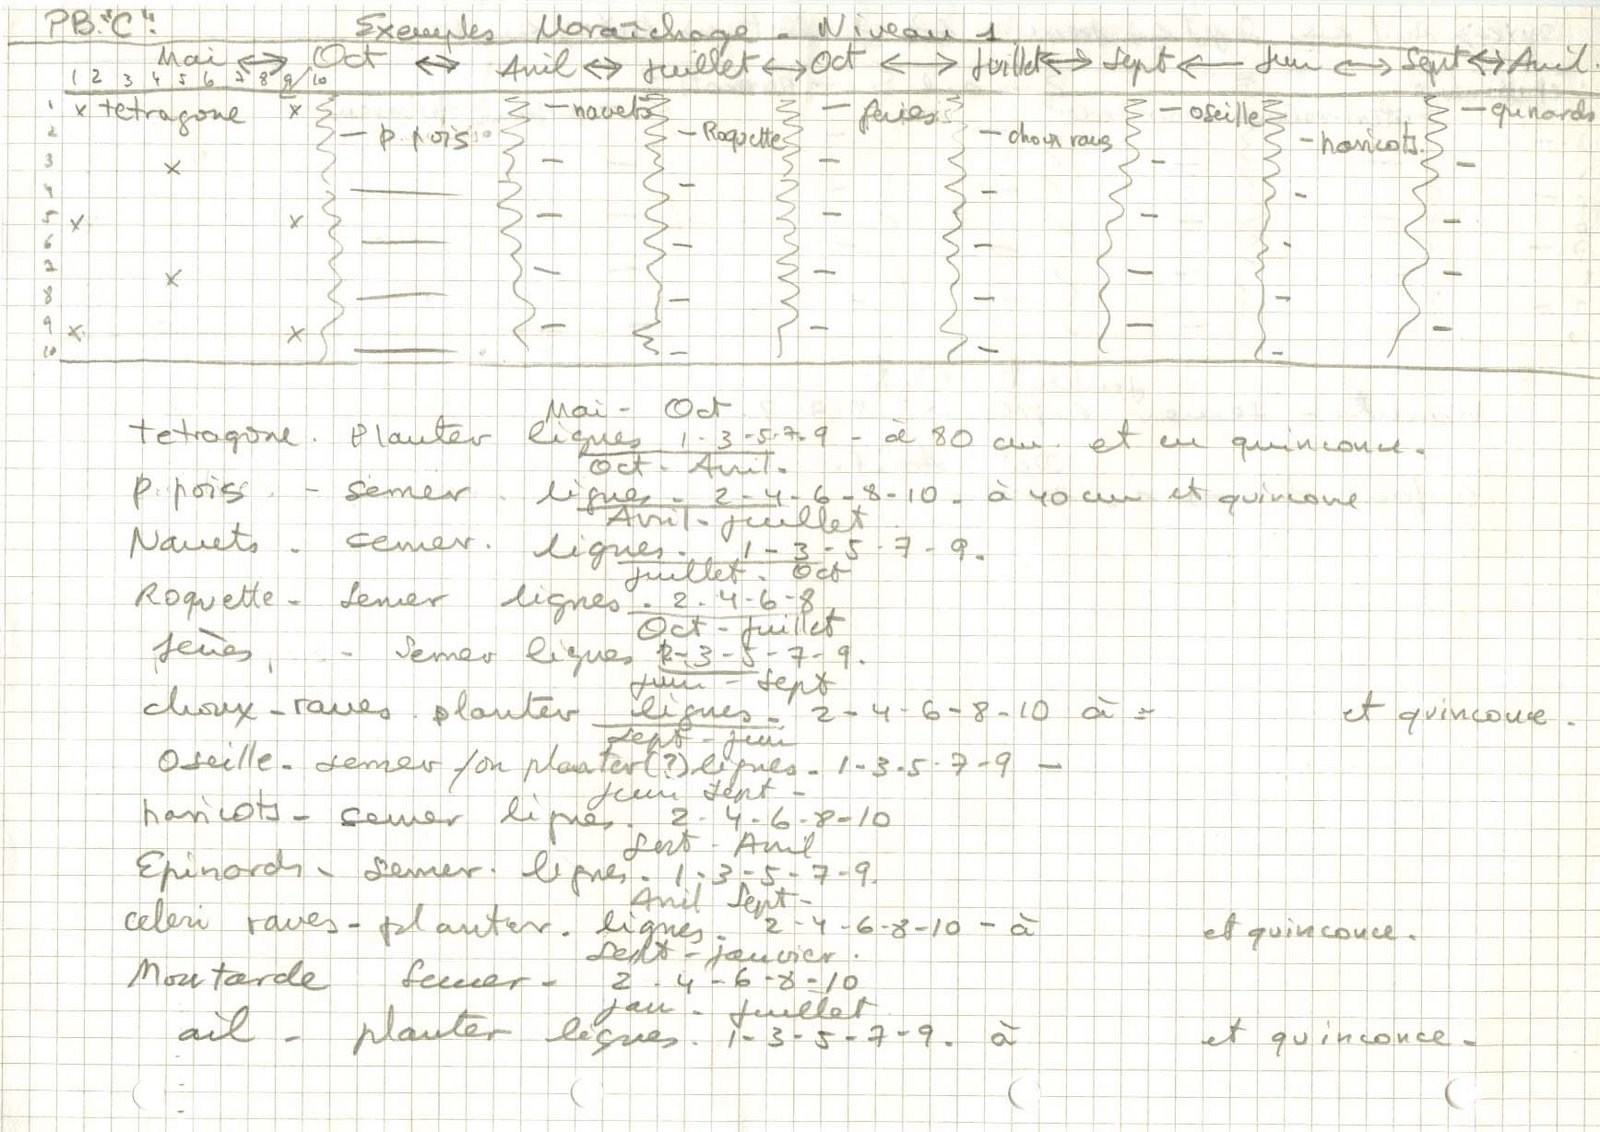 PB."C". Exemples Maraîchage - Niveau 1
Mai ↔ Oct ↔ Avril ↔ juillet ↔ Oct ↔ juillet ↔ Sept ← Juin ↔ Sept ↔ Avril.
1 2 3 4 5 6 7 8 9/10
1 x tetragone x - navets - fèves - oseille - epinards
2 - p. pois - Roquette - choux raves - haricots
3 x
4
5 x x
6
7 x
8
9 x x
10
Mai - Oct
tetragone. Planter lignes 1-3-5-7-9 - à 80 cm et en quinconce.
Oct - Avril.
p. pois - semer - lignes - 2-4-6-8-10 - à 40 cm et quinconce
Avril - juillet
Navets - semer. lignes. 1-3-5-7-9.
juillet - Oct
Roquette - semer lignes - 2-4-6-8
Oct - juillet
fèves, - semer lignes -3-5-7-9.
juin - Sept
choux-raves planter lignes - 2-4-6-8-10 à = et quinconce.
Sept - juin
Oseille - semer /ou planter(?) lignes - 1-3-5-7-9 -
juin Sept -
haricots - semer lignes. 2-4-6-8-10
Sept - Avril
Epinards - semer. lignes - 1-3-5-7-9.
Avril Sept -
celeri raves - planter. lignes. 2-4-6-8-10 - à et quinconce.
Sept - janvier.
Moutarde semer - 2-4-6-8-10
jan - juillet
ail - planter lignes. 1-3-5-7-9. à et quinconce -